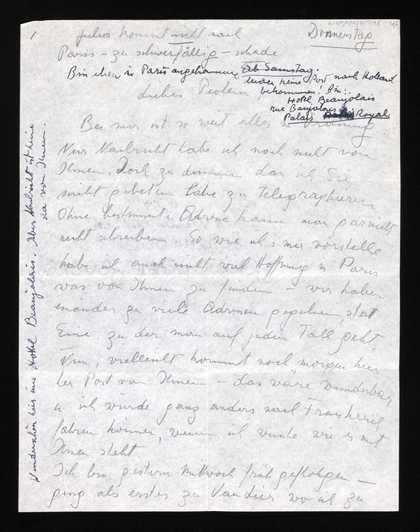 1
Julius kommt nicht nach
Donnerstag
Paris – zu schwerfällig – schade
Bin eben in Paris angekommen
Ab Samstag:
leider keine Post nach Holland
bekommen!
Hotel Beaujolais
rue Beaujolais
Palais Royal
Liebes
Bei mir ist so weit alles in Ordnung
Nur Nachricht habe ich noch nicht von
Ihnen. Doch zu dumm dass ich Sie
nicht gebeten habe zu telegraphieren
Ohne bestimmte Adresse kann man gar nicht
recht schreiben. So wie ich's mir vorstelle
habe ich auch nicht viel Hoffnung in Paris
was von Ihnen zu finden – wir haben
einander zu viele Adressen gegeben, statt
Eine zu der man auf jeden Fall geht.
Nun, vielleicht kommt noch morgen hier
her Post von Ihnen – das wäre wunderbar,
u. ich würde ganz anders nach Frankreich
fahren können, wenn ich wüsste wie es mit
Ihnen steht
Ich bin gestern Mittwoch früh geflogen –
ging als erstes zu
Wunderschön hier im Hotel Beaujolais. Aber Nachricht ist keine
da von Ihnen.